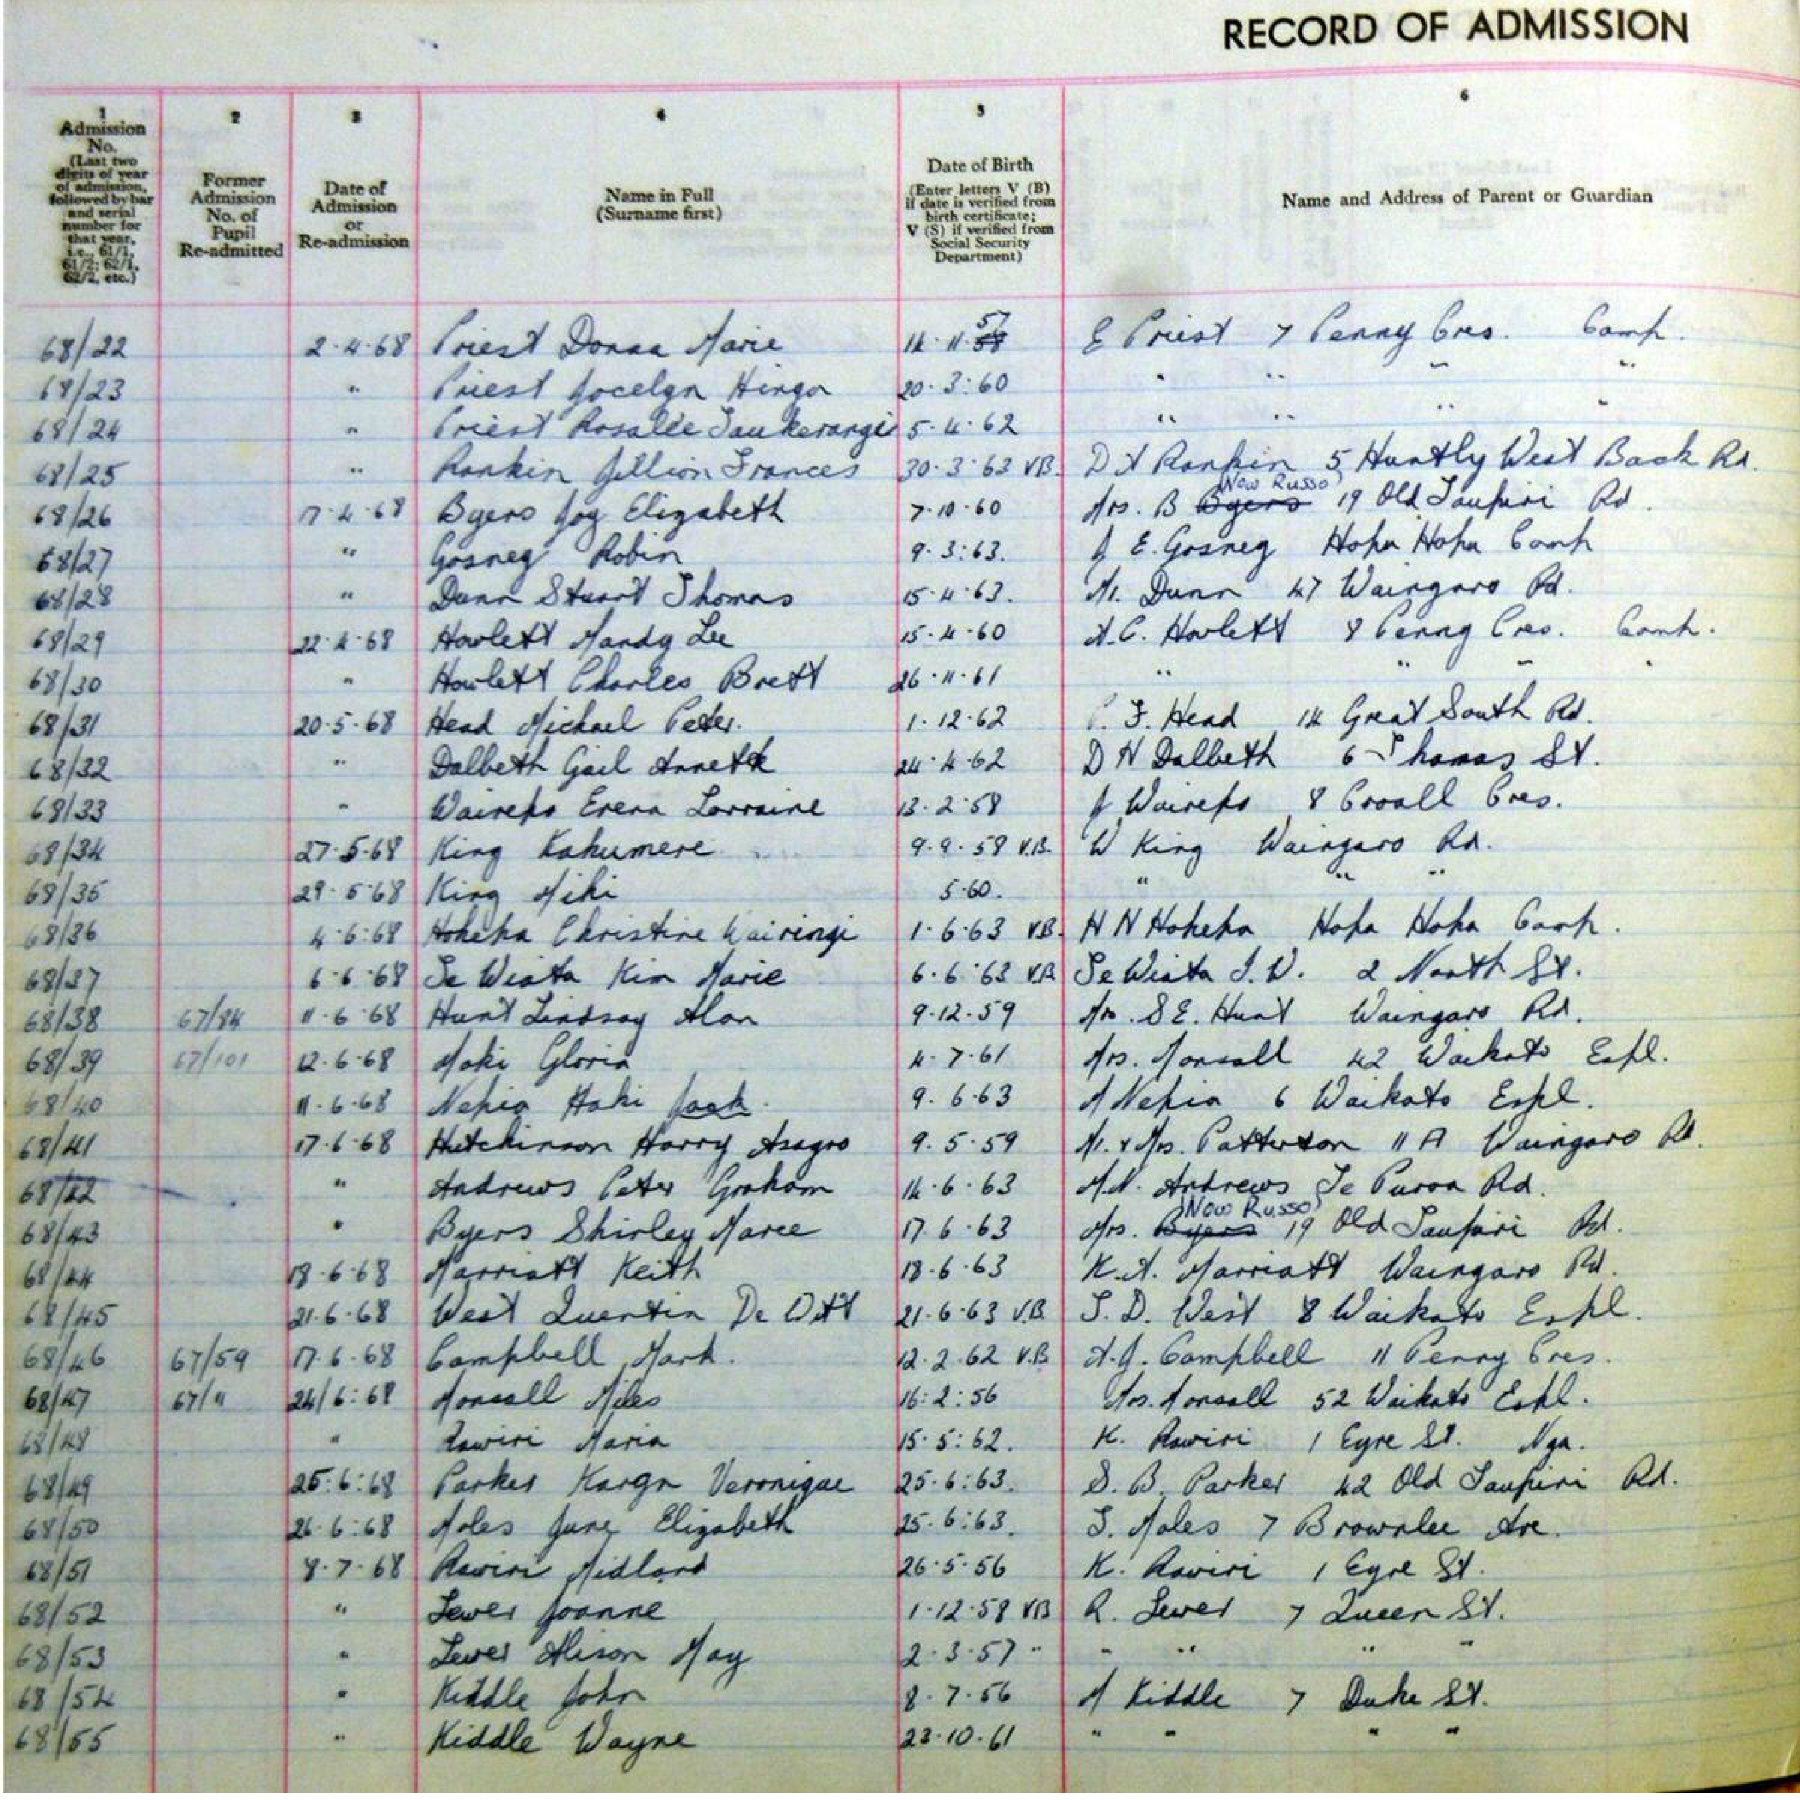 RECORD OF ADMISSION
1 2 3 4 5 6
Admission No. (Last two digits of year of admission, followed by bar and serial number for that year, i.e., 61/1, 61/2; 62/1, 62/2, etc.)
Former Admission No. of Pupil Re-admitted
Date of Admission or Re-admission
Name in Full (Surname first)
Date of Birth (Enter letters V (B) if date is verified from birth certificate; V (S) if verified from Social Security Department)
Name and Address of Parent or Guardian
68/22 2·4·68 Priest Donna Marie 14·11·58 57 E Priest 7 Penny Cres. Camp.
68/23 " Priest Jocelyn Hinga 20·3·60 " " " "
68/24 " Priest Rosalie Taukerangi 5·4·62 " " " "
68/25 " Rankin Jillian Frances 30·3·63 V.B. D A Rankin 5 Huntly West Back Rd.
68/26 17·4·68 Byers Joy Elizabeth 7·10·60 Mrs. B Byers Now Russo 19 Old Taupiri Rd.
68/27 " Gosney Robin 9·3·63. J E. Gosney Hopu Hopu Camp
68/28 " Dunn Stuart Thomas 15·4·63. Mr. Dunn 47 Waingaro Rd.
68/29 22·4·68 Howlett Mandy Lee 15·4·60 A.C. Howlett 8 Penny Cres. Camp.
68/30 " Howlett Charles Brett 26·11·61 " " " "
68/31 20·5·68 Head Michael Peter. 1·12·62 P. F. Head 14 Great South Rd.
68/32 " Dalbeth Gail Annette 24·4·62 D H Dalbeth 6 Thomas St.
68/33 " Wairepo Erena Lorraine 13·2·58 J Wairepo 8 Croall Cres.
68/34 27·5·68 King Kahumere 9·9·58 V.B. W King Waingaro Rd.
68/35 29·5·68 King Miki 5·60. " " "
68/36 4·6·68 Hohepa Christine Wairingi 1·6·63 V.B. H N Hohepa Hopu Hopu Camp.
68/37 6·6·68 Te Wiata Kim Marie 6·6·63 V.B Te Wiata I.W. 2 North St.
68/38 67/84 11·6·68 Hunt Lindsay Alan 9·12·59 Mrs. S E. Hunt Waingaro Rd.
68/39 67/101 12·6·68 Maki Gloria 4·7·61 Mrs. Monsall 42 Waikato Espl.
68/40 11·6·68 Nepia Haki Jack. 9·6·63 M Nepia 6 Waikato Espl.
68/41 17·6·68 Hutchinson Harry 9·5·59 Mr. & Mrs. Patterson 11 A Waingaro Rd.
68/42 " Andrews Peter Graham 14·6·63 M.N. Andrews Te Puroa Rd.
68/43 " Byers Shirley Maree 17·6·63 Mrs. Byers Now Russo 19 Old Taupiri Rd.
68/44 18·6·68 Marriott Keith 18·6·63 K.A. Marriott Waingaro Rd.
68/45 21·6·68 West Quentin De Witt 21·6·63 V.B T. D. West 8 Waikato Espl.
68/46 67/59 17·6·68 Campbell Mark. 12·2·62 V.B. A.J. Campbell 11 Penny Cres.
68/47 67/11 24/6·68 Monsall Miles 16·2·56 Mrs. Monsall 52 Waikato Espl.
68/48 " Rawiri Maria 15·5·62. K. Rawiri 1 Eyre St. Nga.
68/49 25·6·68 Parker Karyn Veronique 25·6·63. S. B. Parker 42 Old Taupiri Rd.
68/50 26·6·68 Moles June Elizabeth 25·6·63. T. Moles 7 Brownlee Ave.
68/51 8·7·68 Rawiri Midland 26·5·56 K. Rawiri 1 Eyre St.
68/52 " Lewer Joanne 1·12·58 V.B R. Lewer 7 Queen St.
68/53 " Lewer Alison May 2·3·57 " " " " "
68/54 " Kiddle John 8·7·56 M Kiddle 7 Duke St.
68/55 " Kiddle Wayne 23·10·61 " " " "